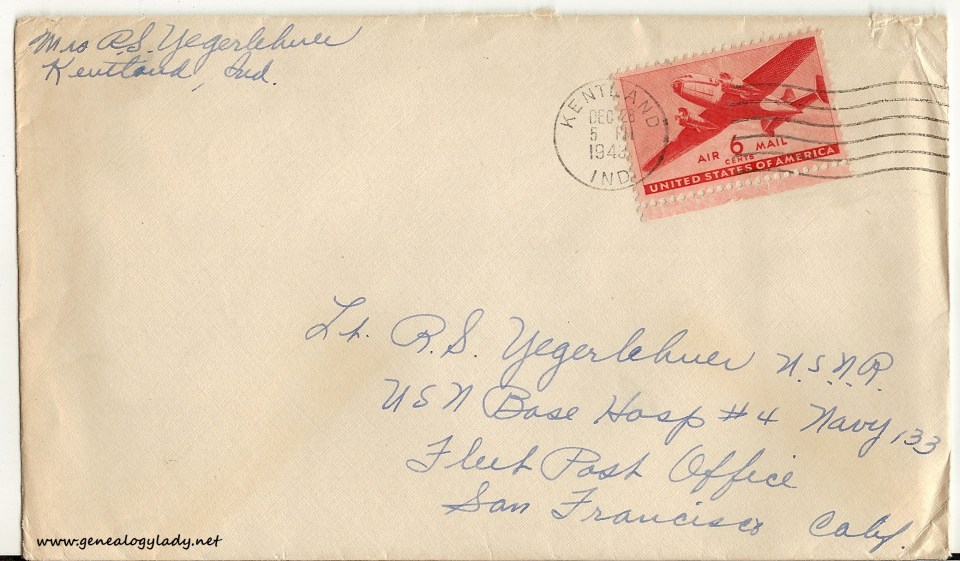 Mrs R.S. Yegerlehner
Kentland, Ind.
KENTLAND
DEC 28
5 PM
1943
IND.
AIR 6 MAIL
CENTS
UNITED STATES OF AMERICA
Lt. R.S. Yegerlehner U.S.N.R.
USN Base Hosp #4 Navy 133
Fleet Post Office
San Francisco Calif.
www.genealogylady.net